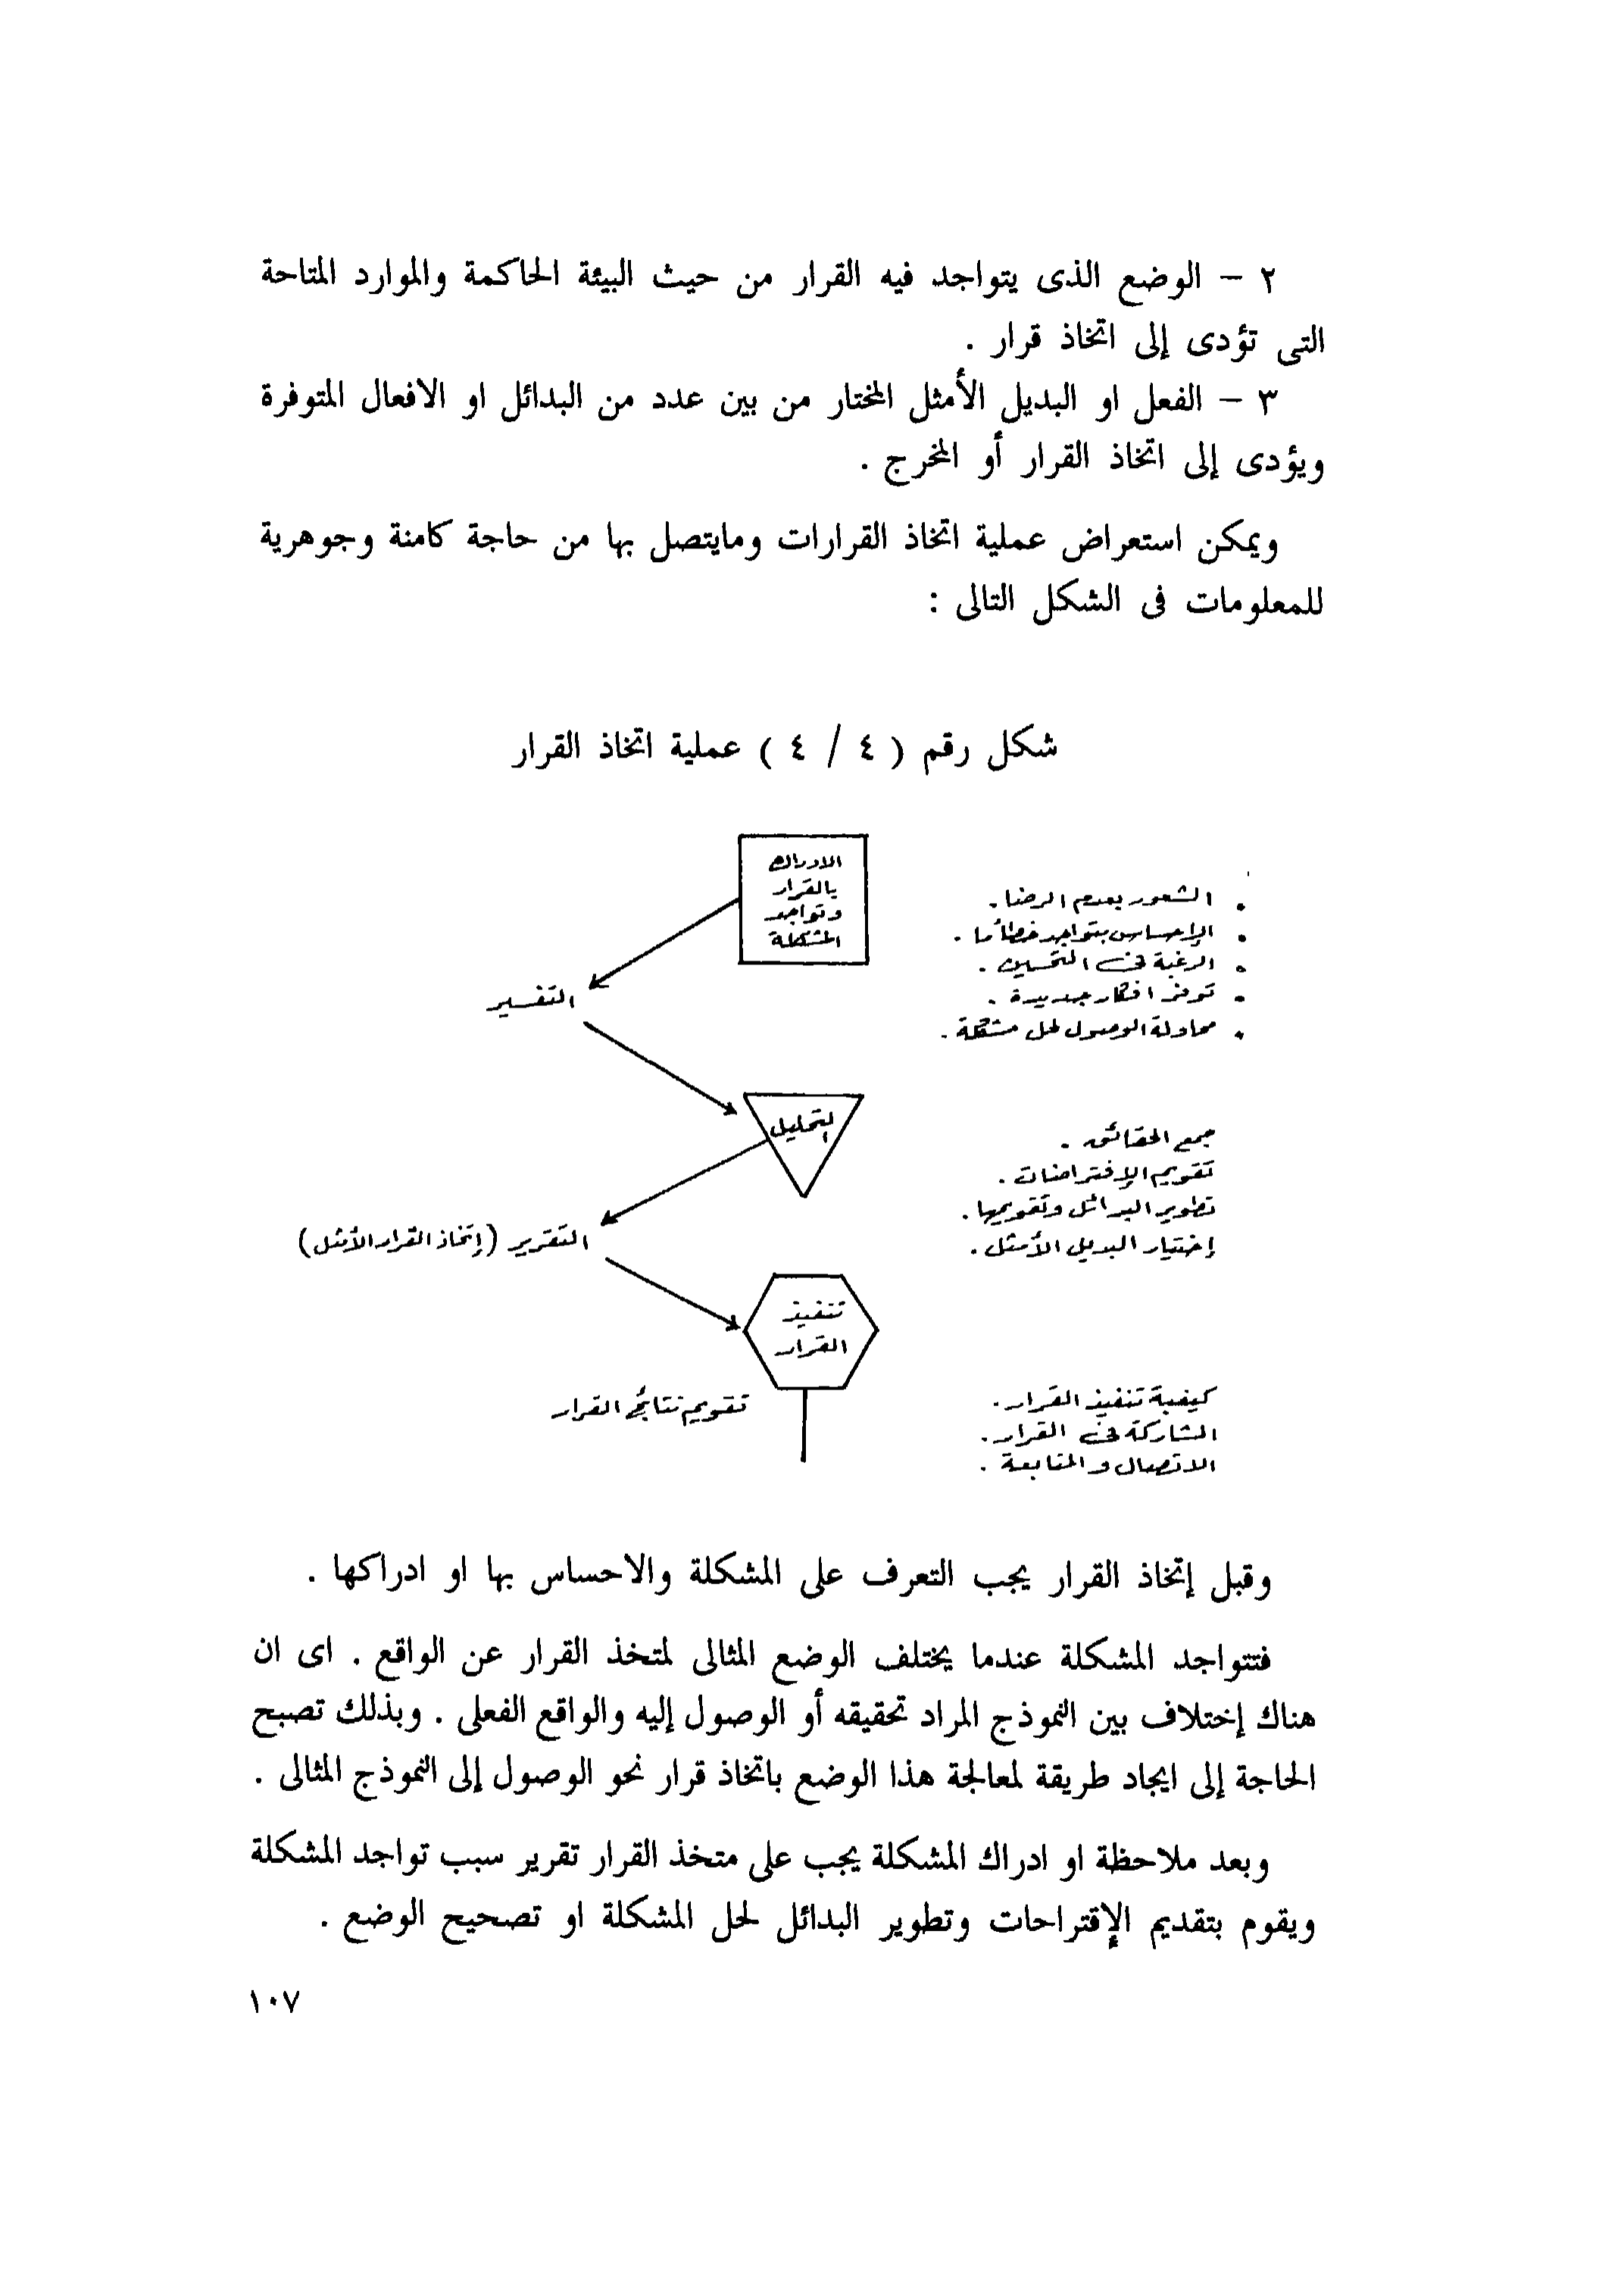 ٢ - الوضع الذى يتواجد فيه القرار من حيث البيئة الحاكمة والموارد المتاحة
التى تؤدى إلى اتخاذ قرار .
٣ - الفعل او البديل الأمثل المختار من بين عدد من البدائل او الافعال المتوفرة
ويؤدى إلى اتخاذ القرار أو المخرج .
ويمكن استعراض عملية اتخاذ القرارات ومايتصل بها من حاجة كامنة وجوهرية
للمعلومات فى الشكل التالى :
شكل رقم ( ٤ / ٤ ) عملية اتخاذ القرار
الادراك
بالقرار
وتواجد
المشكلة
• الشعور بعدم الرضا .
• الإحساس بتواجد خطأ ما .
• الرغبة فى التحسين .
• توفر افكار جديدة .
• محاولة الوصول لحل مشكلة .
التفسير
التحليل
جمع الحقائق .
تقويم الإفتراضات .
تطوير البدائل وتقويمها .
إختيار البديل الأمثل .
التقرير (إتخاذ القرار الأمثل)
تنفيذ
القرار
كيفية تنفيذ القرار .
المشاركة فى القرار .
الاتصال والمتابعة .
تقويم نتائج القرار
وقبل إتخاذ القرار يجب التعرف على المشكلة والاحساس بها او ادراكها .
فتتواجد المشكلة عندما يختلف الوضع المثالى لمتخذ القرار عن الواقع . اى ان
هناك إختلاف بين النموذج المراد تحقيقه أو الوصول إليه والواقع الفعلى . وبذلك تصبح
الحاجة إلى ايجاد طريقة لمعالجة هذا الوضع باتخاذ قرار نحو الوصول إلى النموذج المثالى .
وبعد ملاحظة او ادراك المشكلة يجب على متخذ القرار تقرير سبب تواجد المشكلة
ويقوم بتقديم الإقتراحات وتطوير البدائل لحل المشكلة او تصحيح الوضع .
١٠٧